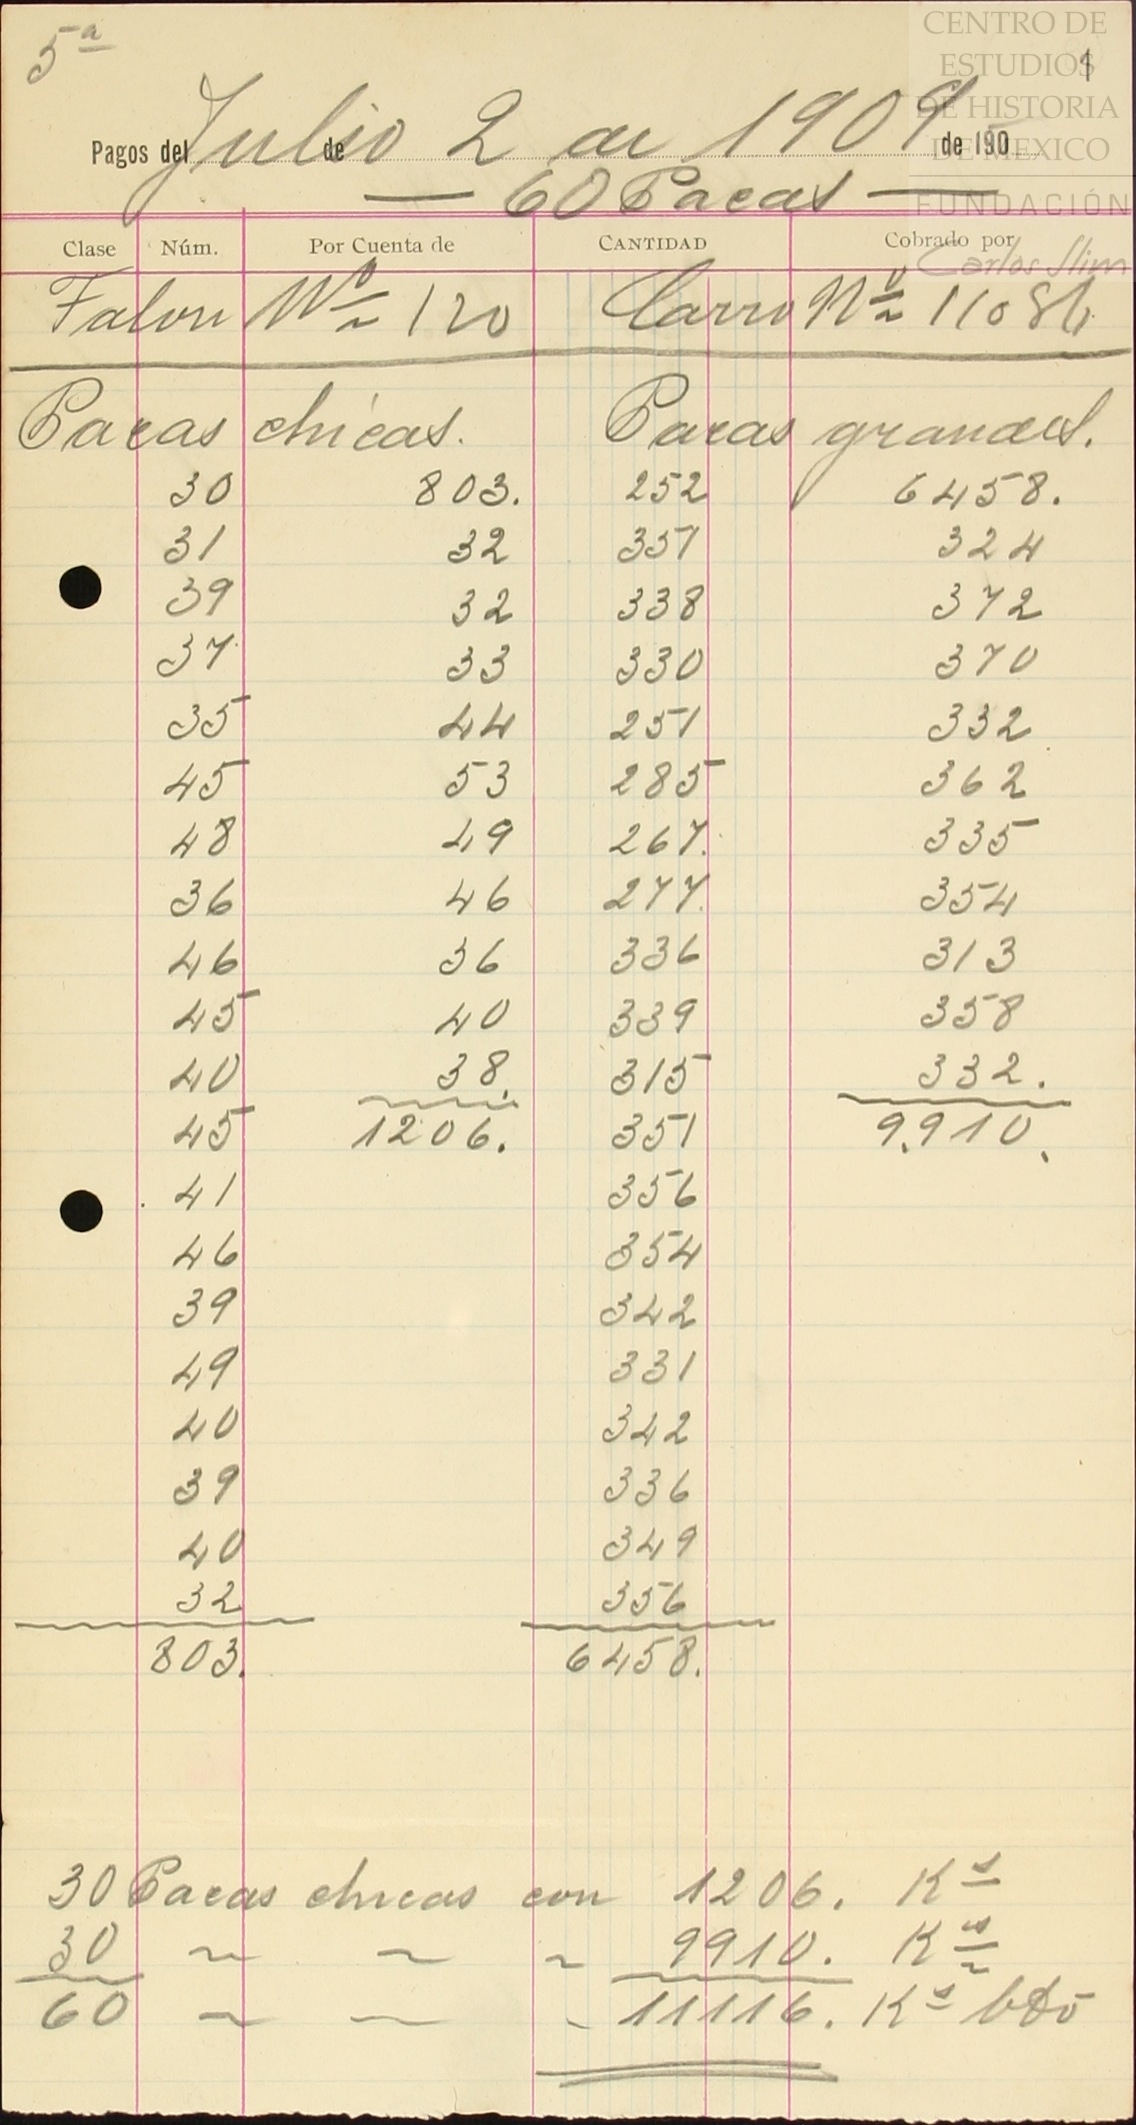 5ª
1
CENTRO DE
ESTUDIOS
DE HISTORIA
DE MEXICO
FUNDACIÓN
Carlos Slim
Pagos del Julio de 2 de 1909 de 190
— 60 Pacas —
Clase Núm. Por Cuenta de CANTIDAD Cobrado por
Talon Nº 120 Carro Nº 11086
Pacas chicas. Pacas grandes.
30 803. 252 6458.
31 32 357 324
39 32 338 372
37 33 330 370
35 44 257 332
45 53 285 362
48 49 267. 335
36 46 277. 354
46 36 336 313
45 40 339 358
40 38. 315 332.
45 1206. 351 9.910.
41 356
46 354
39 342
49 331
40 342
39 336
40 349
32 356
803. 6458.
30 Pacas chicas con 1206. Kˢ
30 ~ ~ ~ 9910. Kˢ
60 ~ ~ ~ 11116. Kˢ bto